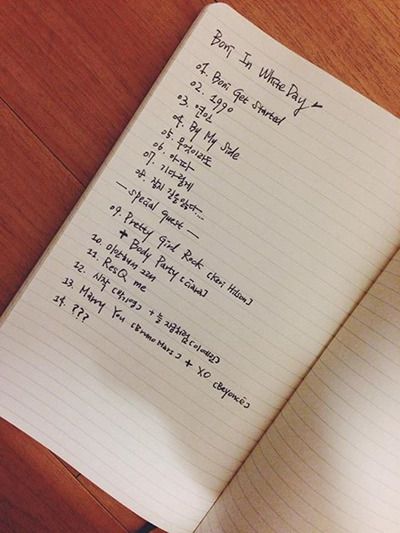 Boni In WhiteDay
01. Boni Get Started
02. 1990
03. 연인
04. By My Side
05. 무엇이라도
06. 아파
07. 기다릴게
08. 잠시 길을 잃다...
— special guest —
09. Pretty Girl Rock [Keri Hilson]
+ Body Party [Ciara]
10.
11. ResQ me
12. 시작 [박기영] + 늘 지금처럼 [이예린]
13. Marry You [Bruno Mars] + XO [Beyoncé]
14. ???